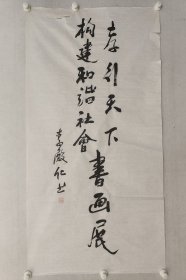 孝引天下书画展
构建和谐社會